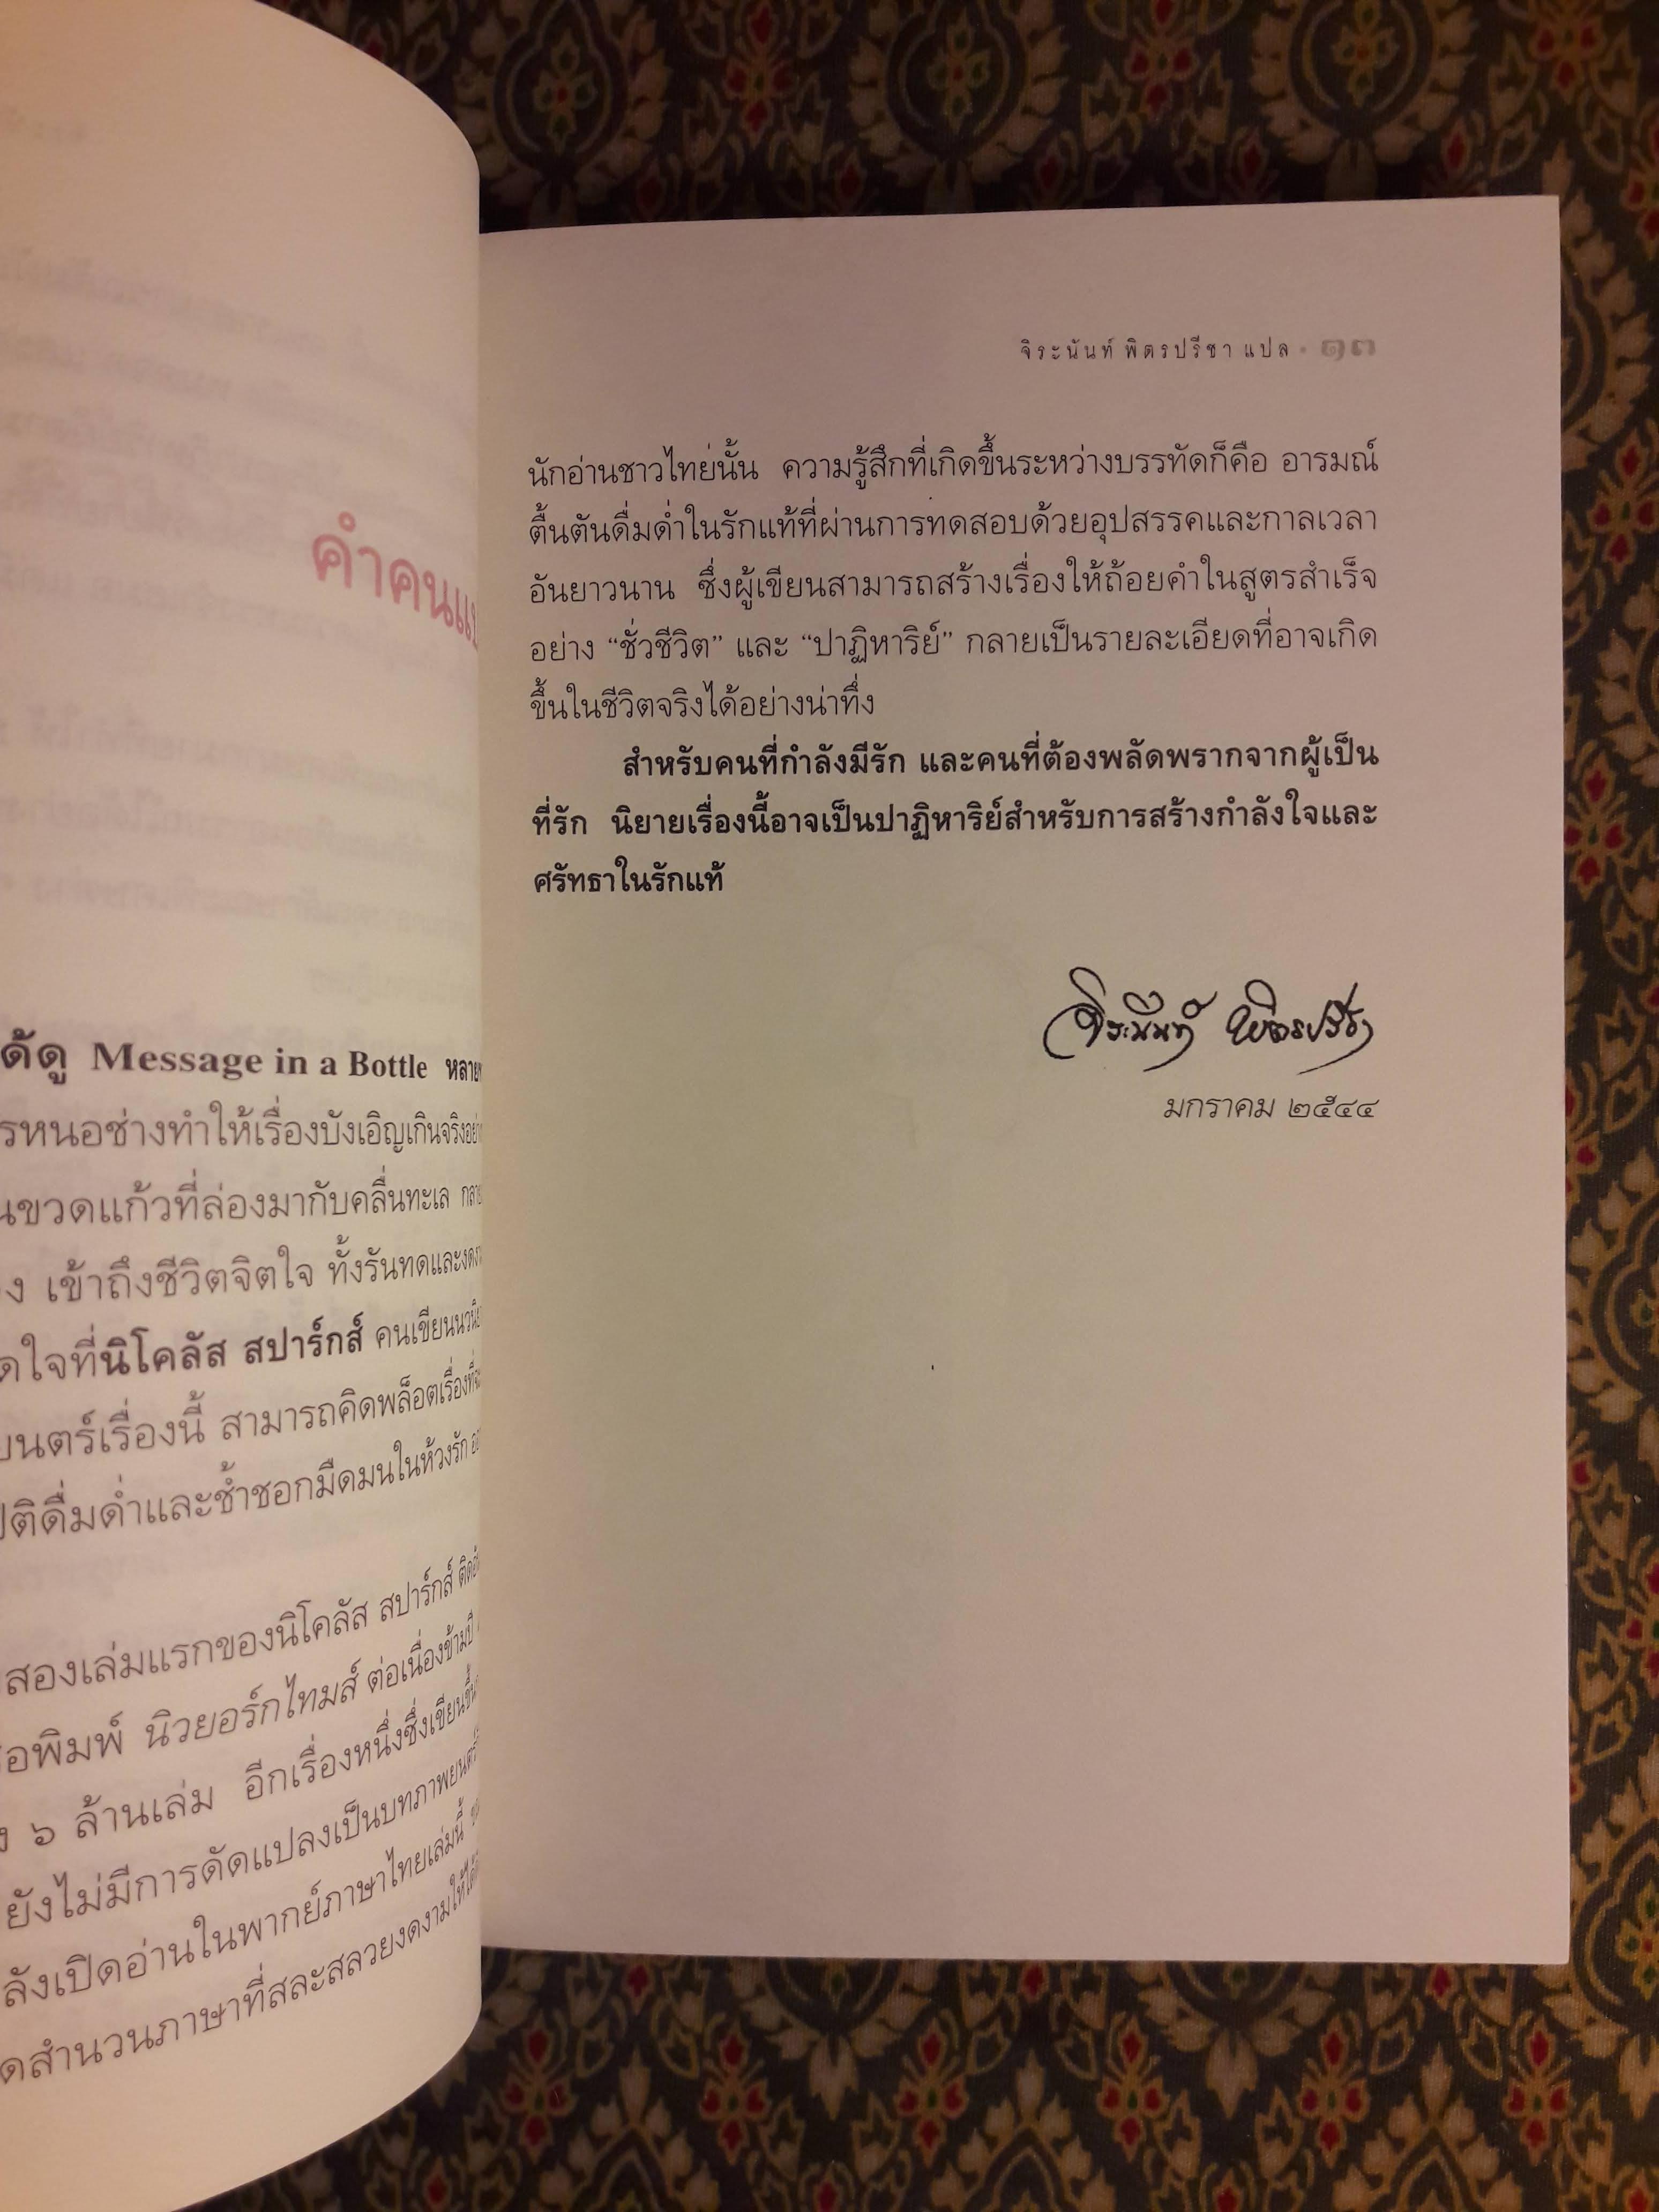 คำคน
ด้ดู Message in a Bottle
รหนอช่างทำให้เรื่องบังเอิญเกินจริง
นขวดแก้วที่ล่องมากับคลื่นทะเล
ง เข้าถึงชีวิตจิตใจ ทั้งรันทดและ
ดใจที่นิโคลัส สปาร์กส์ คนเขียน
ยนตร์เรื่องนี้ สามารถคิดพล็อตเรื่องที่
ปิติดื่มด่ำและช้ำชอกมืดมนในห้วงรัก
สองเล่มแรกของนิโคลัส สปาร์กส์
อพิมพ์ นิวยอร์กไทมส์ ต่อเนื่องข้ามปี
ง ๖ ล้านเล่ม อีกเรื่องหนึ่งซึ่งเขียนขึ้น
ยังไม่มีการดัดแปลงเป็นบทภาพยนตร์
ลังเปิดอ่านในพากย์ภาษาไทยเล่มนี้
ดสำนวนภาษาที่สละสลวยงดงามให้ได้
จิระนันท์ พิตรปรีชา แปล • ๑๓
นักอ่านชาวไทยนั้น ความรู้สึกที่เกิดขึ้นระหว่างบรรทัดก็คือ อารมณ์
ตื้นตันดื่มด่ำในรักแท้ที่ผ่านการทดสอบด้วยอุปสรรคและกาลเวลา
อันยาวนาน ซึ่งผู้เขียนสามารถสร้างเรื่องให้ถ้อยคำในสูตรสำเร็จ
อย่าง “ชั่วชีวิต” และ “ปาฏิหาริย์” กลายเป็นรายละเอียดที่อาจเกิด
ขึ้นในชีวิตจริงได้อย่างน่าทึ่ง
สำหรับคนที่กำลังมีรัก และคนที่ต้องพลัดพรากจากผู้เป็น
ที่รัก นิยายเรื่องนี้อาจเป็นปาฏิหาริย์สำหรับการสร้างกำลังใจและ
ศรัทธาในรักแท้
จิระนันท์ พิตรปรีชา
มกราคม ๒๕๔๔